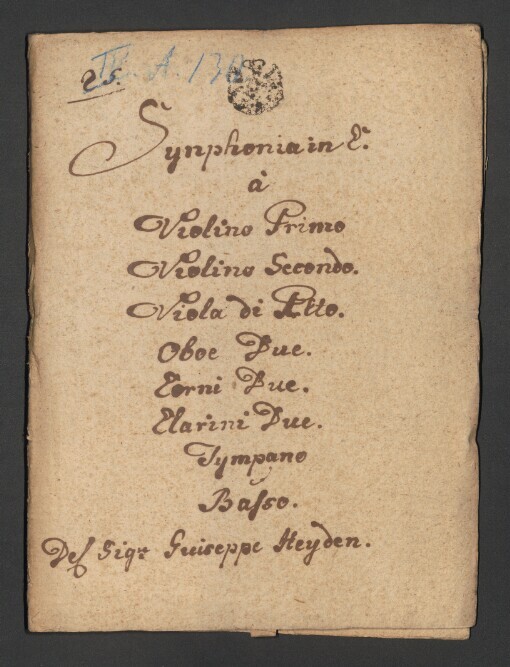 25.
IV. A. 138
Synphonia in C.
à
Violino Primo
Violino Secondo.
Viola di Alto.
Oboe Due.
Corni Due.
Clarini Due.
Tympano
Basso.
Del Sigr Guiseppe Heyden.